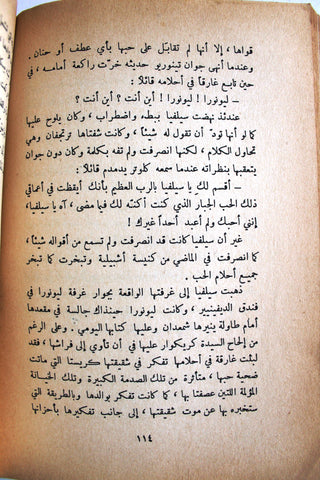 قواها ، إلا أنها لم تقابَل على حبها بأي عطف أو حنان .
وعندما أنهى جوان تينوريو حديثه خرّت راكعة أمامه ، في
حين تابع غارقاً في أحلامه قائلاً :
– ليونورا ! ليونورا ! أين أنت ؟ أين أنت ؟
عندئذ نهضت سيلفيا ببطء واضطراب ، وكان يلوح عليها
كما لو أنها تودّ أن تقول له شيئاً ، وكانت شفتاها ترتجفان وهي
تحاول الكلام ، لكنها انصرفت ولم تفه بكلمة وكان دون جوان
يتعقبها بنظراته عندما سمعه كلوتر يدمدم قائلاً :
– أقسم لك يا سيلفيا بالرب العظيم بأنك أيقظت في أعماقي
ذلك الحب الجبار الذي كنت أكنّه لك فيما مضى ، آه يا سيلفيا ،
إنني أحبك ولم أعبد أحداً غيرك !
غير أن سيلفيا كانت قد انصرفت ولم تسمع من أقواله شيئاً ،
كما انصرفت في الماضي من كنيسة أشبيلية وتبخرت كما تبخر
جميع أحلام الحب .
ذهبت سيلفيا إلى غرفتها الواقعة بجوار غرفة ليونورا في
فندق الديفينيير ، وكانت ليونورا حينذاك جالسة في مقعدها
أمام طاولة ينيرها شمعدان وعليها كتابها اليومي . وعلى الرغم
من إلحاح السيدة كريكوار عليها في أن تأوي إلى فراشها ، فقد
لبثت غارقة في أحلامها تفكر في شقيقتها كريستا التي ماتت
ضحية حبها ، متأثرة من تلك الصدمة الكبيرة وتلك الخيانة
المؤلمة اللتين عصفتا بها ، كما كانت تفكر بوالدها وبالطريقة التي
ستخبره بها عن موت شقيقتها ، إلى جانب تفكيرها بأحزانها
١١٤